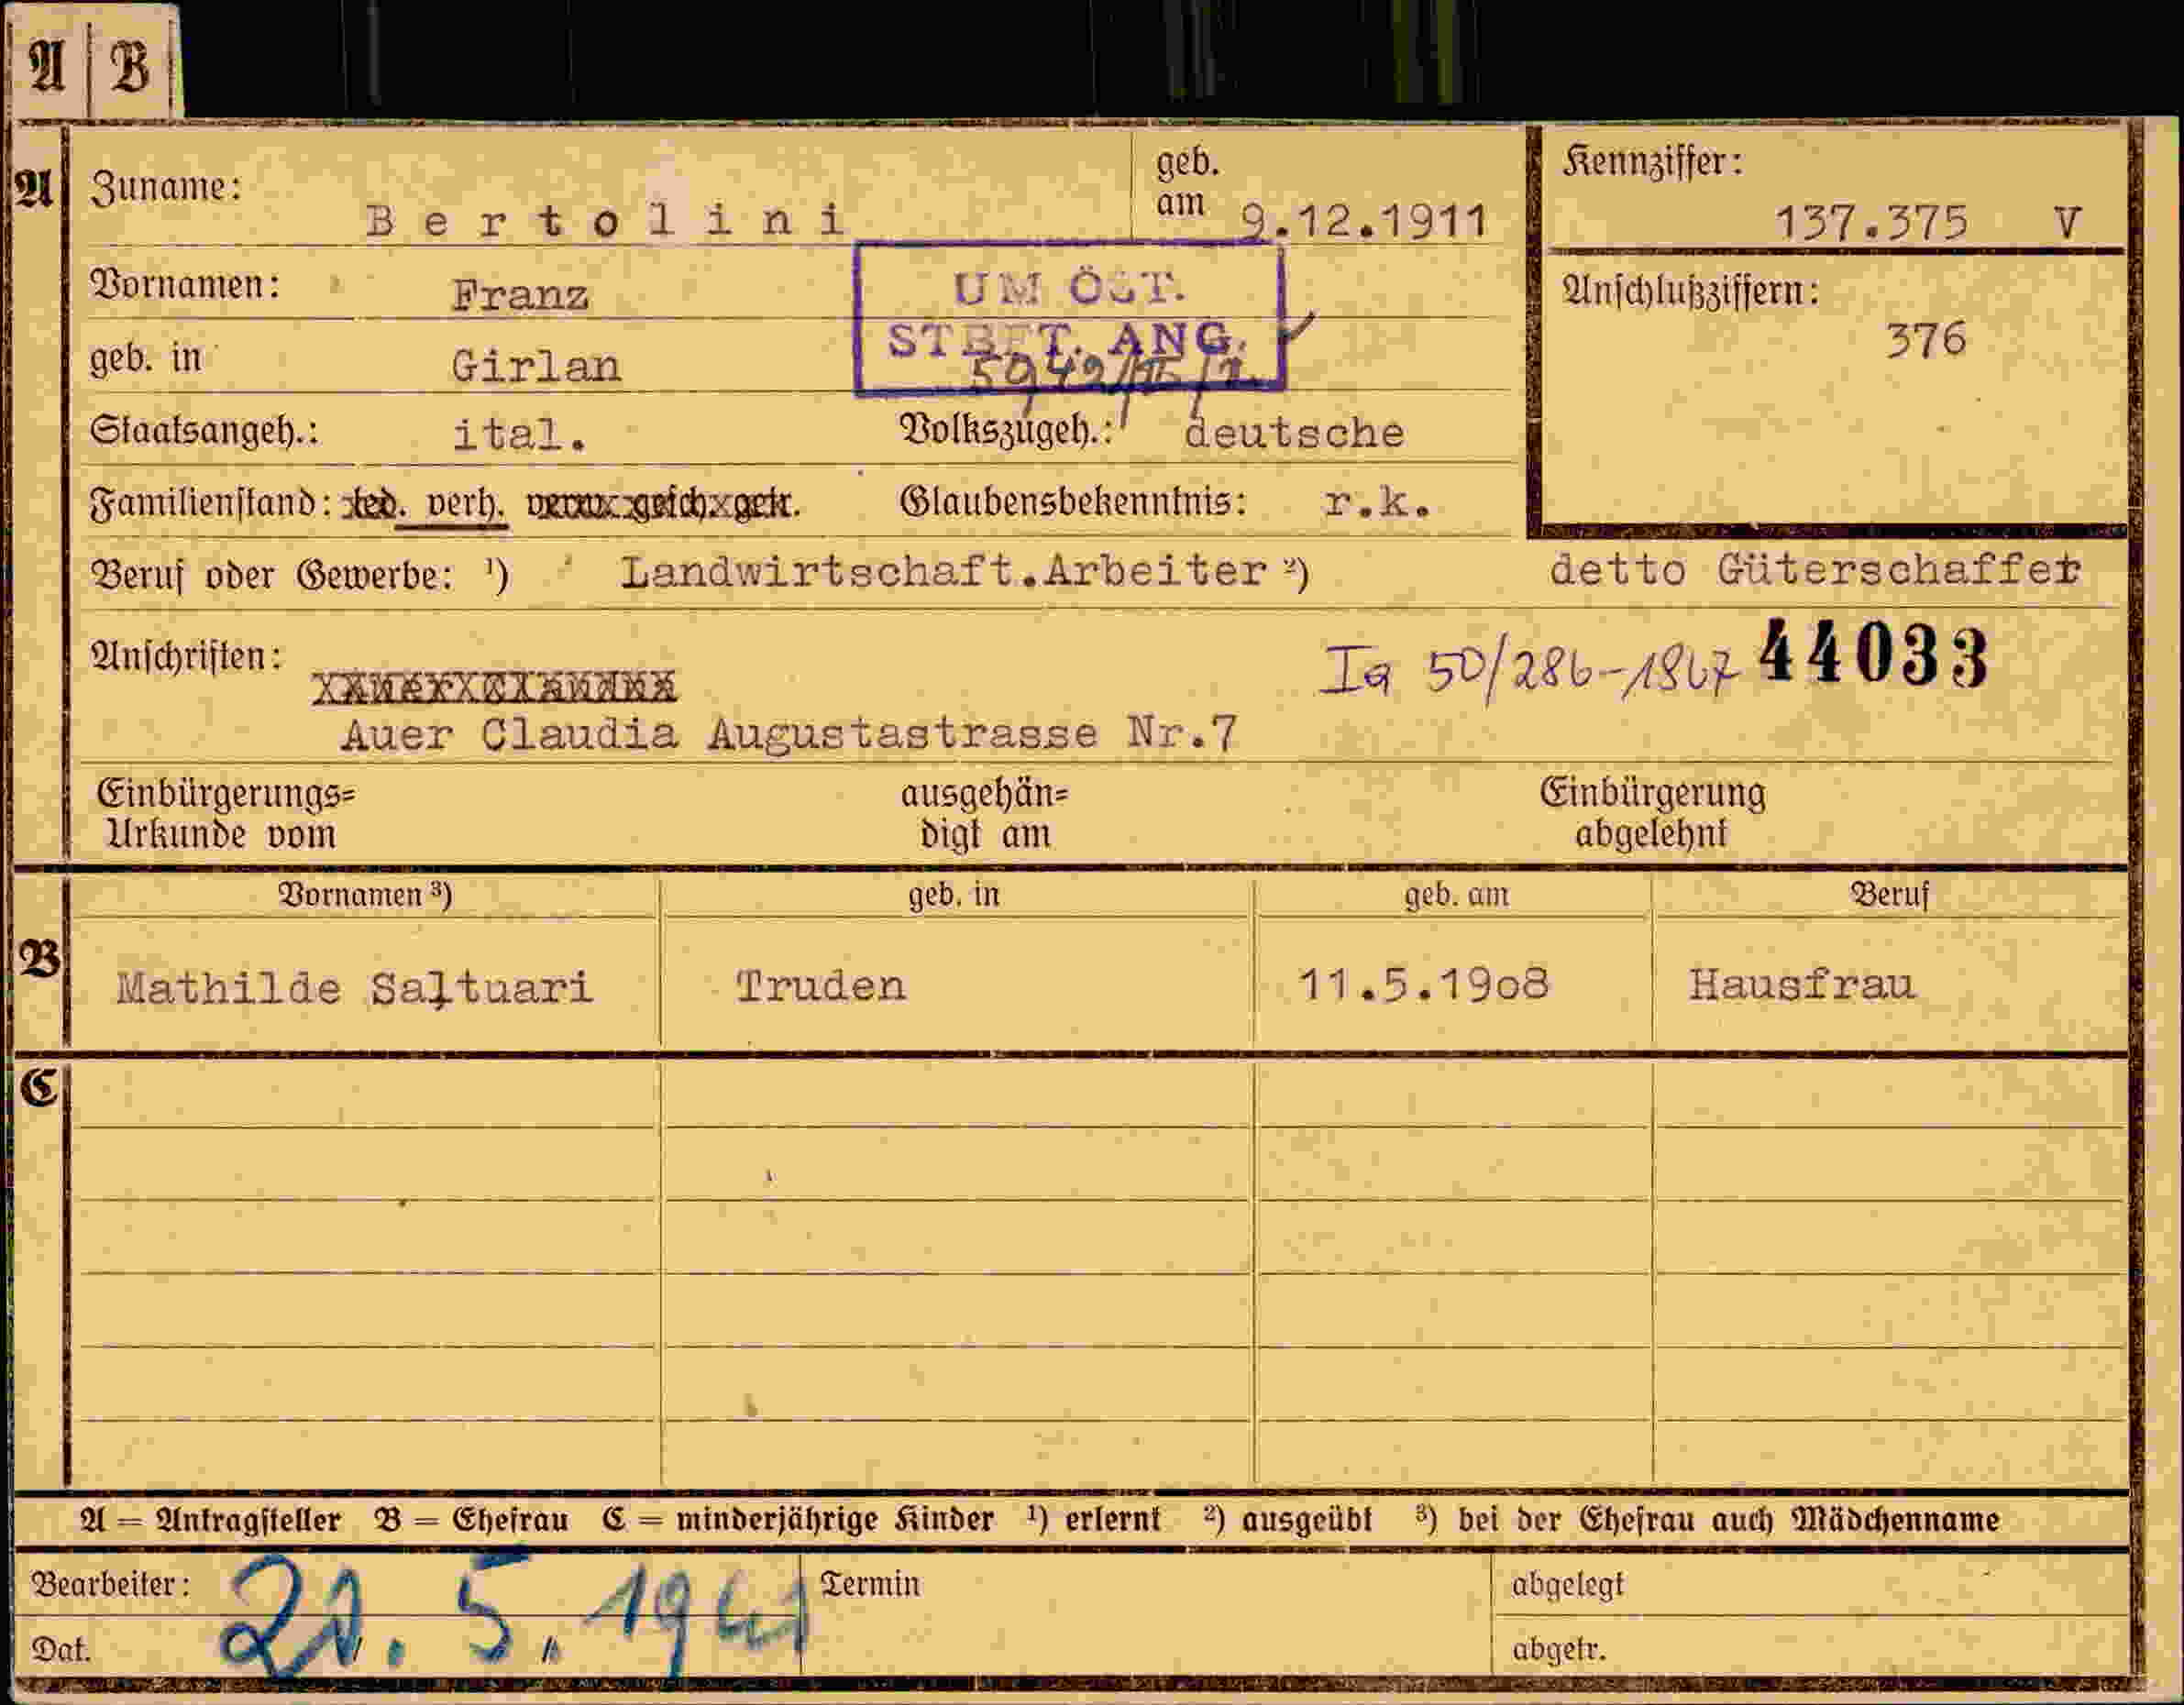 A B
A Zuname: Bertolini geb. am 9.12.1911 Kennziffer: 137.375 V
Vornamen: Franz UM ÖST. Anschlußziffern:
geb. in Girlan STBFT. ANG. 376
Staatsangeh.: ital. Volkszugeh.: deutsche
Familienstand: led. verh. Glaubensbekenntnis: r.k.
Beruf oder Gewerbe: ¹) Landwirtschaft.Arbeiter ²) detto Güterschaffer
Anschriften: Ia 50/286-1867 44033
Auer Claudia Augustastrasse Nr.7
Einbürgerungs= ausgehän= Einbürgerung
Urkunde vom digt am abgelehnt
Vornamen ³) geb. in geb. am Beruf
B Mathilde Saltuari Truden 11.5.1908 Hausfrau
C
A = Antragsteller B = Ehefrau C = minderjährige Kinder ¹) erlernt ²) ausgeübt ³) bei der Ehefrau auch Mädchenname
Bearbeiter: Termin abgelegt
Dat. 21. 5. 1941 abgetr.